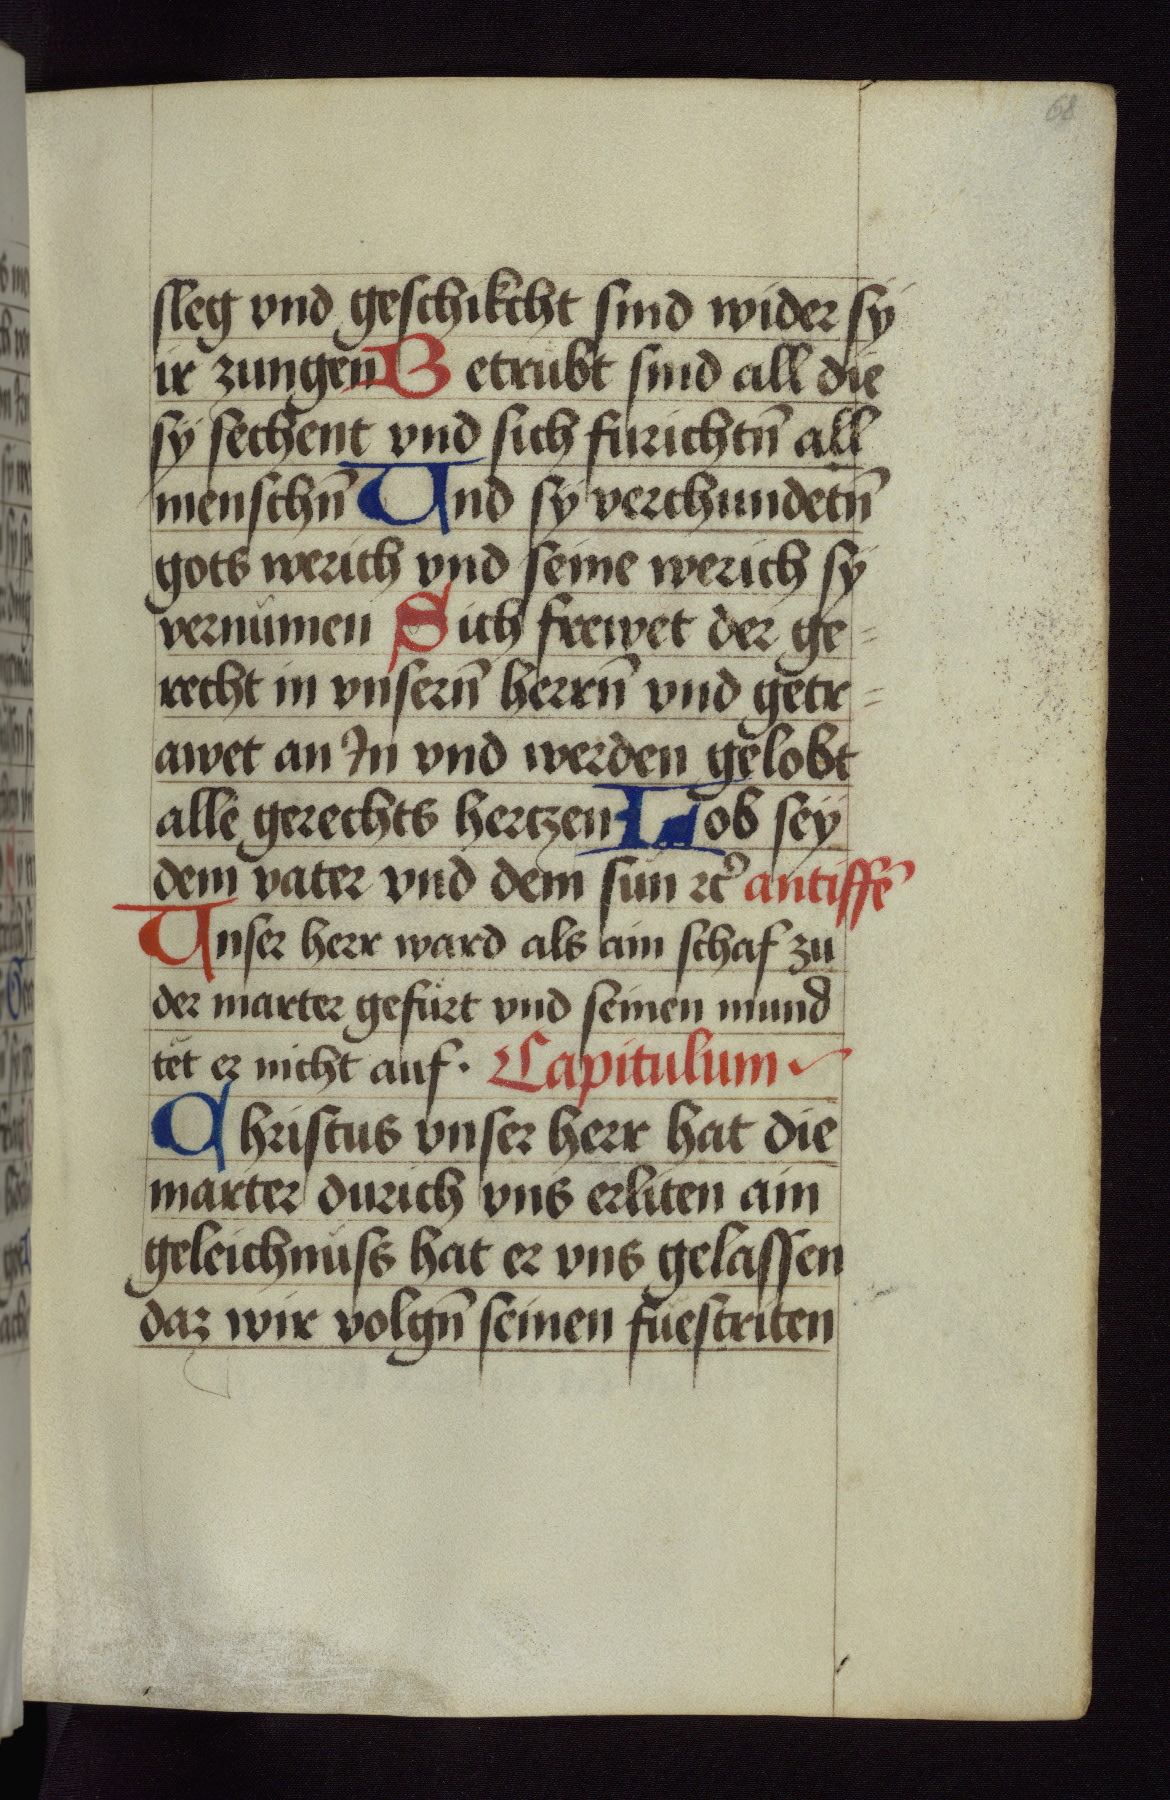 68
sleg vnd geschikcht sind wider sy
ir zungen Betrubt sind all die
sy sechent vnd sich furichtn̄ all
menschn̄ Vnd sy verchundetn̄
gots werich vnd seine werich sy
vernůmen Sich frewet der ge=
recht in vnsern̄ herrn̄ vnd getr=
awet an In vnd werden gelobt
alle gerechts hertzen Lob sey
dem vater vnd dem sun ꝛc̄ antiffē
Vnser herr ward als ain schaf zu
der marter gefůrt vnd seinen mund
tet er nicht auf. Capitulum
Christus vnser herr hat die
marter durich vns erliten ain
geleichnůss hat er vns gelassen
daz wir volgn̄ seinen fůestriten